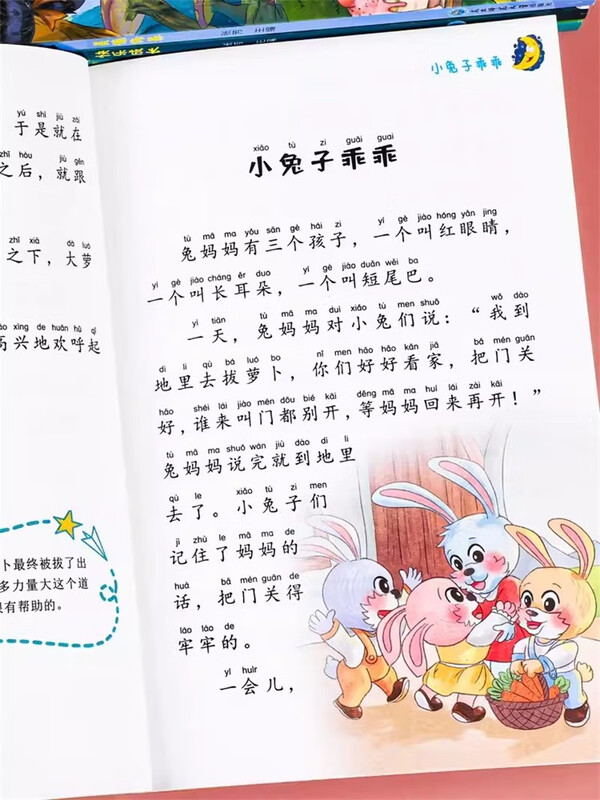 yú shì jiù zài
于是就在
zhī hòu, jiù gēn
之后，就跟
zhī xià dà luó
之下，大萝
xìng de huān hū qǐ
高兴地欢呼起
卜最终被拔了出
多力量大这个道
有帮助的。
小兔子乖乖
xiǎo tù zi guāi guai
小兔子乖乖
tù mā ma yǒu sān gè hái zi yí gè jiào hóng yǎn jing
兔妈妈有三个孩子，一个叫红眼睛，
yí gè jiào cháng ěr duo yí gè jiào duǎn wěi ba
一个叫长耳朵，一个叫短尾巴。
yì tiān tù mā ma duì xiǎo tù men shuō wǒ dào
一天，兔妈妈对小兔们说：“我到
dì li qù bá luó bo nǐ men hǎo hǎo kān jiā bǎ mén guān
地里去拔萝卜，你们好好看家，把门关
hǎo shéi lái jiào mén dōu bié kāi děng mā ma huí lái zài kāi
好，谁来叫门都别开，等妈妈回来再开！”
tù mā ma shuō wán jiù dào dì li
兔妈妈说完就到地里
qù le xiǎo tù zi men
去了。小兔子们
jì zhù le mā ma de
记住了妈妈的
huà bǎ mén guān de
话，把门关得
láo láo de
牢牢的。
yí huìr
一会儿，